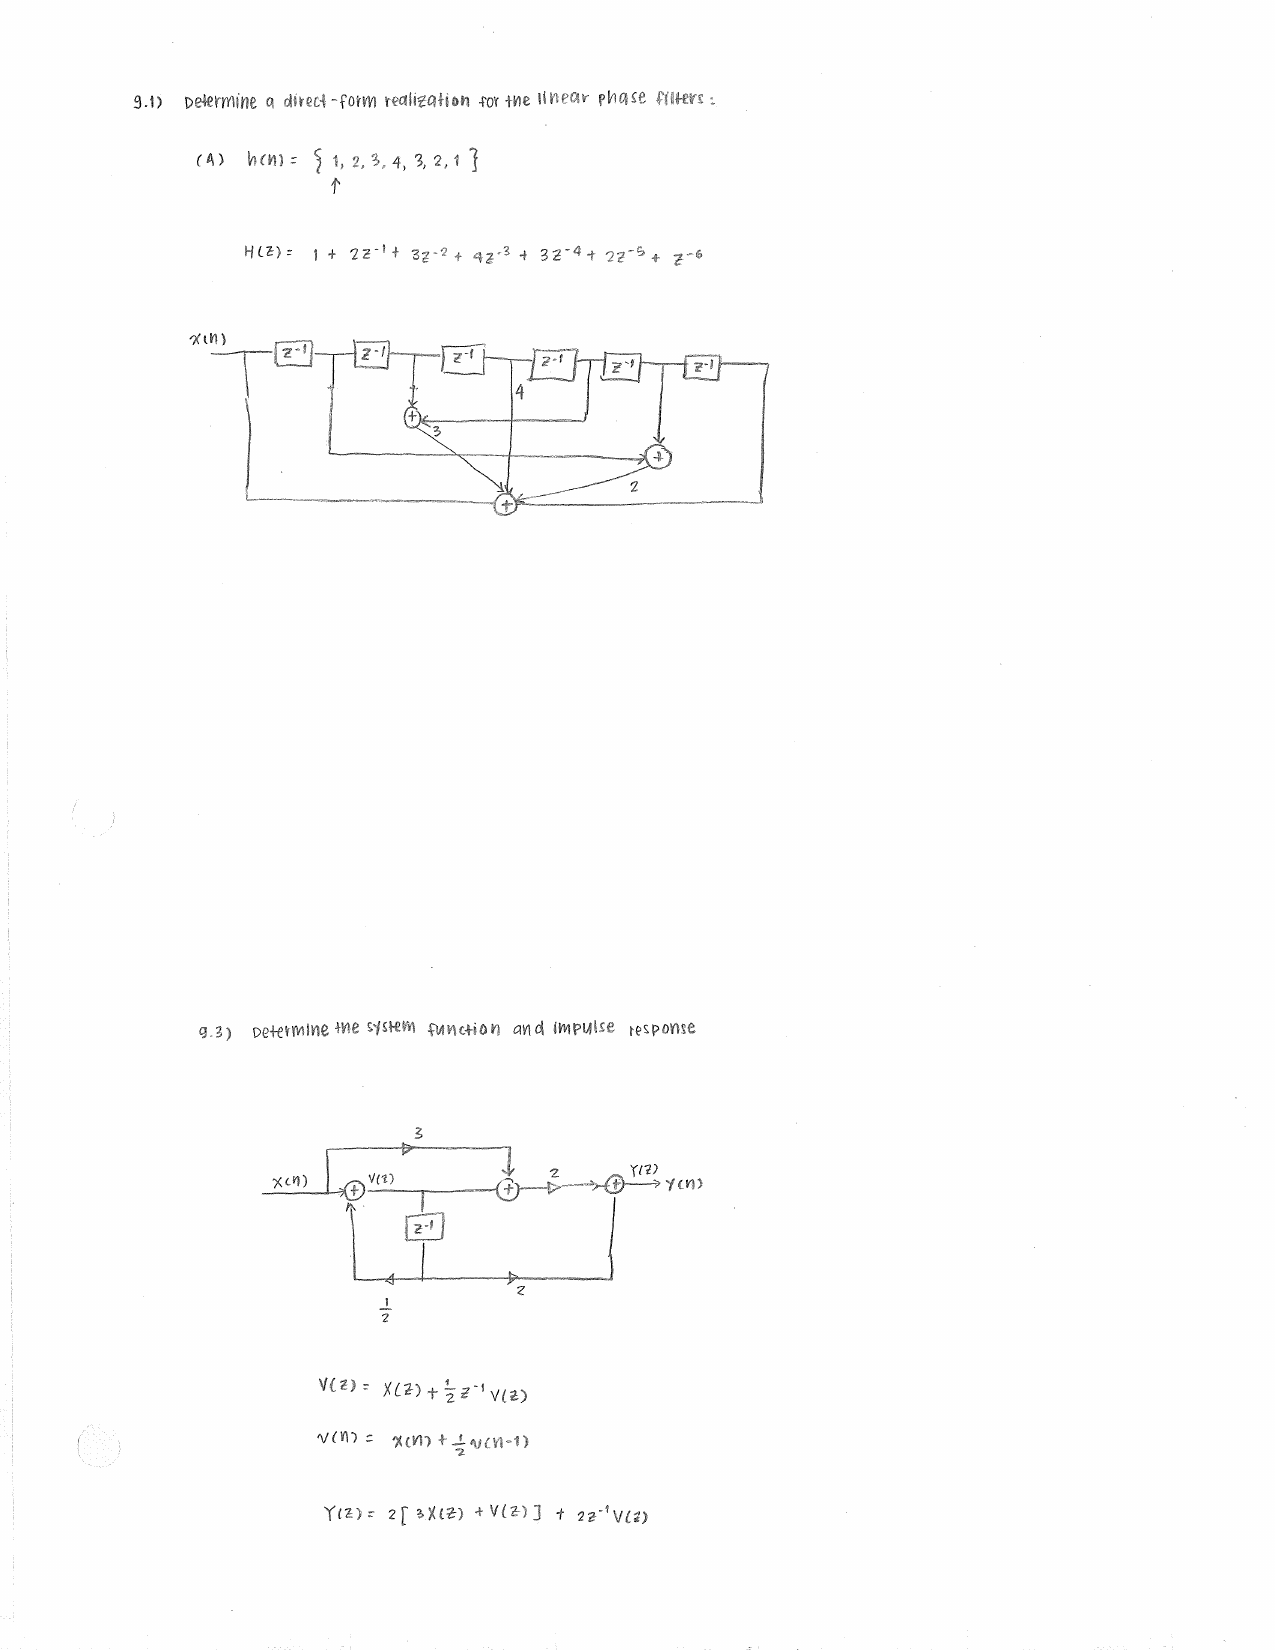 9.1) Determine a direct-form realization for the linear phase filters:
(A) h(n) = { 1, 2, 3, 4, 3, 2, 1 }
↑
H(z) = 1 + 2z⁻¹ + 3z⁻² + 4z⁻³ + 3z⁻⁴ + 2z⁻⁵ + z⁻⁶
x(n)
z⁻¹ z⁻¹ z⁻¹ z⁻¹ z⁻¹ z⁻¹
4
+
3
+
2
+
9.3) Determine the system function and impulse response
3
x(n) + V(z) + 2 + Y(z) y(n)
z⁻¹
1/2 2
V(z) = X(z) + 1/2 z⁻¹ V(z)
v(n) = x(n) + 1/2 v(n-1)
Y(z) = 2[ 3X(z) + V(z) ] + 2z⁻¹V(z)